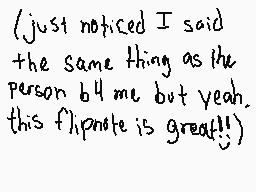 (just noticed I said
the same thing as the
person b4 me but yeah.
this flipnote is great!!)